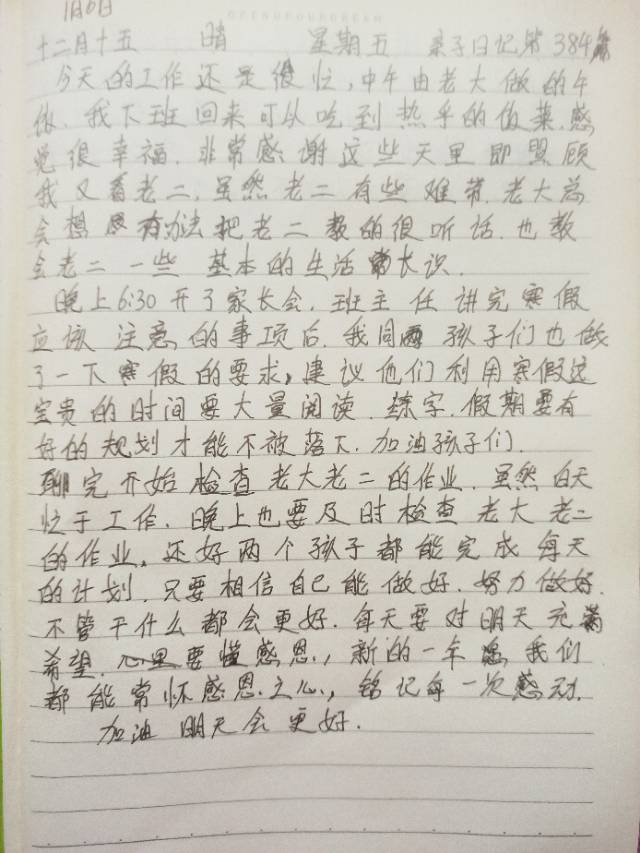 1月6日
十二月十五 晴 星期五 亲子日记第384篇
今天的工作还是很忙,中午由老大做的午
饭.我下班回来可以吃到热乎的饭菜.感
觉很幸福.非常感谢这些天里即照顾
我又看老二.虽然老二有些难带.老大总
会想尽办法把老二教的很听话.也教
会老二一些基本的生活常识.
晚上6:30开了家长会.班主任讲完寒假
应该注意的事项后.我同孩子们也做
了一下寒假的要求,建议他们利用寒假这
宝贵的时间要大量阅读.练字.假期要有
好的规划才能不被落下.加油孩子们.
聊完开始检查老大老二的作业.虽然白天
忙于工作.晚上也要及时检查老大老二
的作业.还好两个孩子都能完成每天
的计划.只要相信自己能做好.努力做好.
不管干什么都会更好.每天要对明天充满
希望.心里要懂感恩,新的一年 我们
都能常怀感恩之心,铭记每一次感动.
加油 明天会更好.